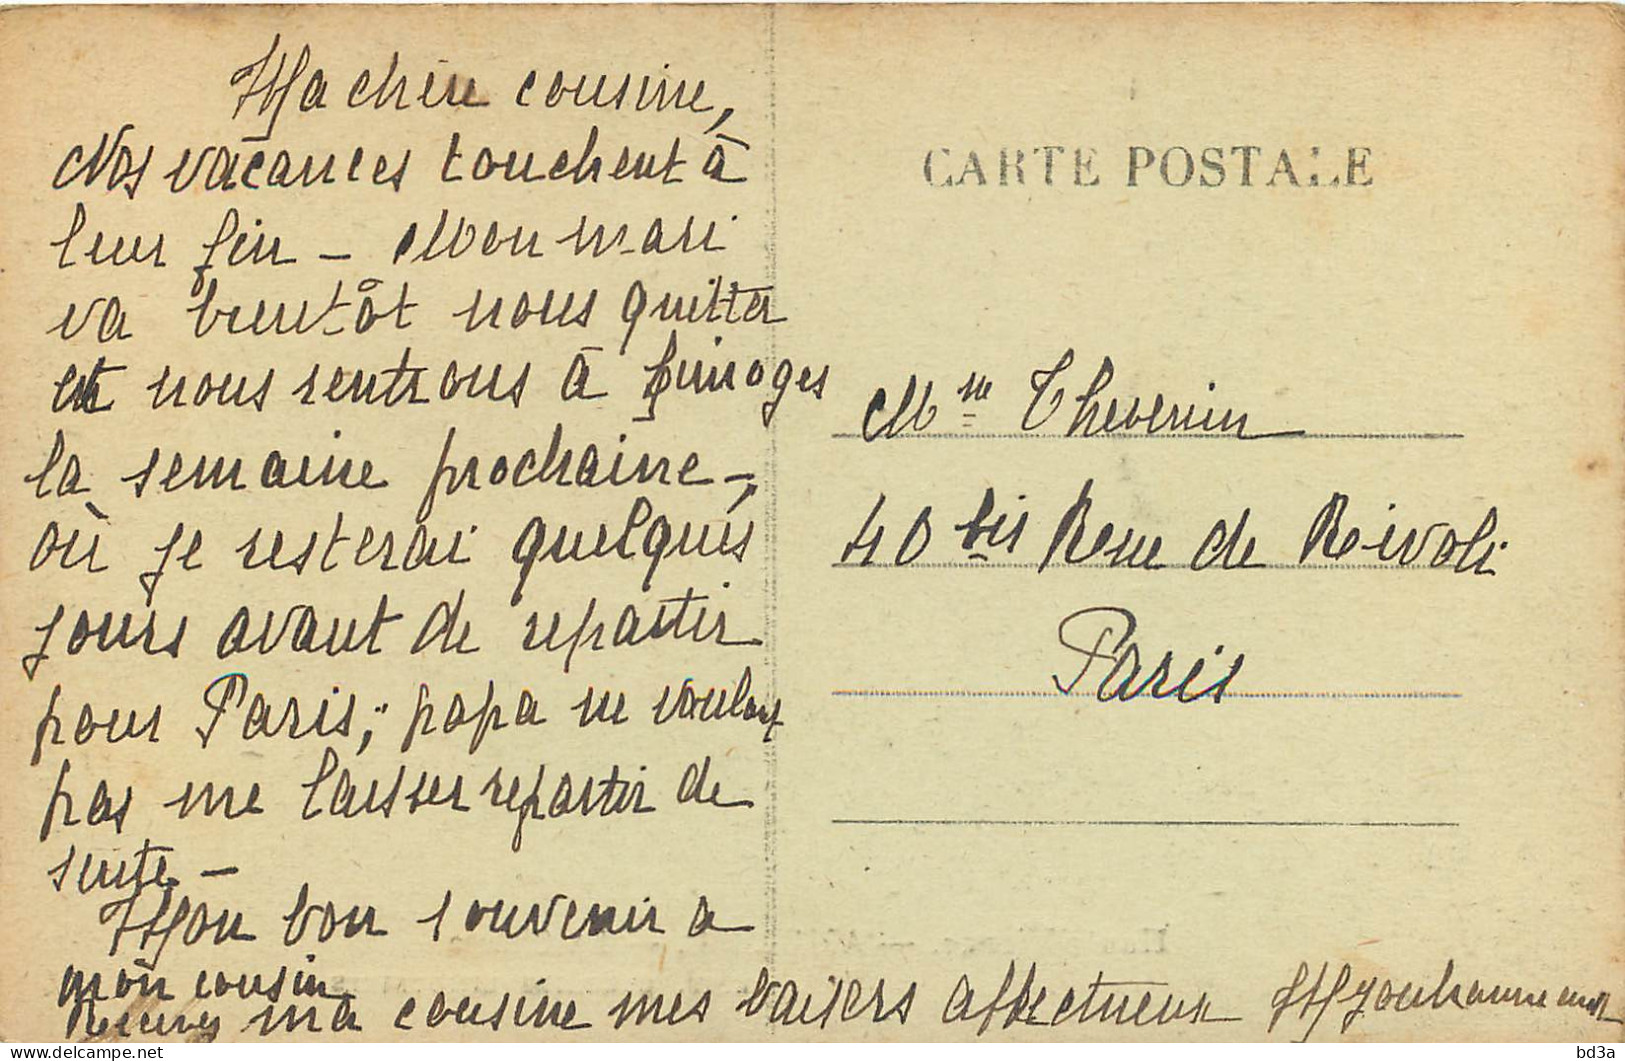 Ma chère cousine,
Nos vacances touchent à
leur fin - Mon mari
va bientôt nous quitter
et nous rentrons à Limoges
la semaine prochaine -,
où je resterai quelques
jours avant de repartir
pour Paris, papa ne voulant
pas me laisser repartir de
suite -
Mon bon souvenir a
mon cousin
Recevez ma cousine mes baisers affectueux
CARTE POSTALE
Mme Thevenin
40 bis Rue de Rivoli
Paris
bd3a